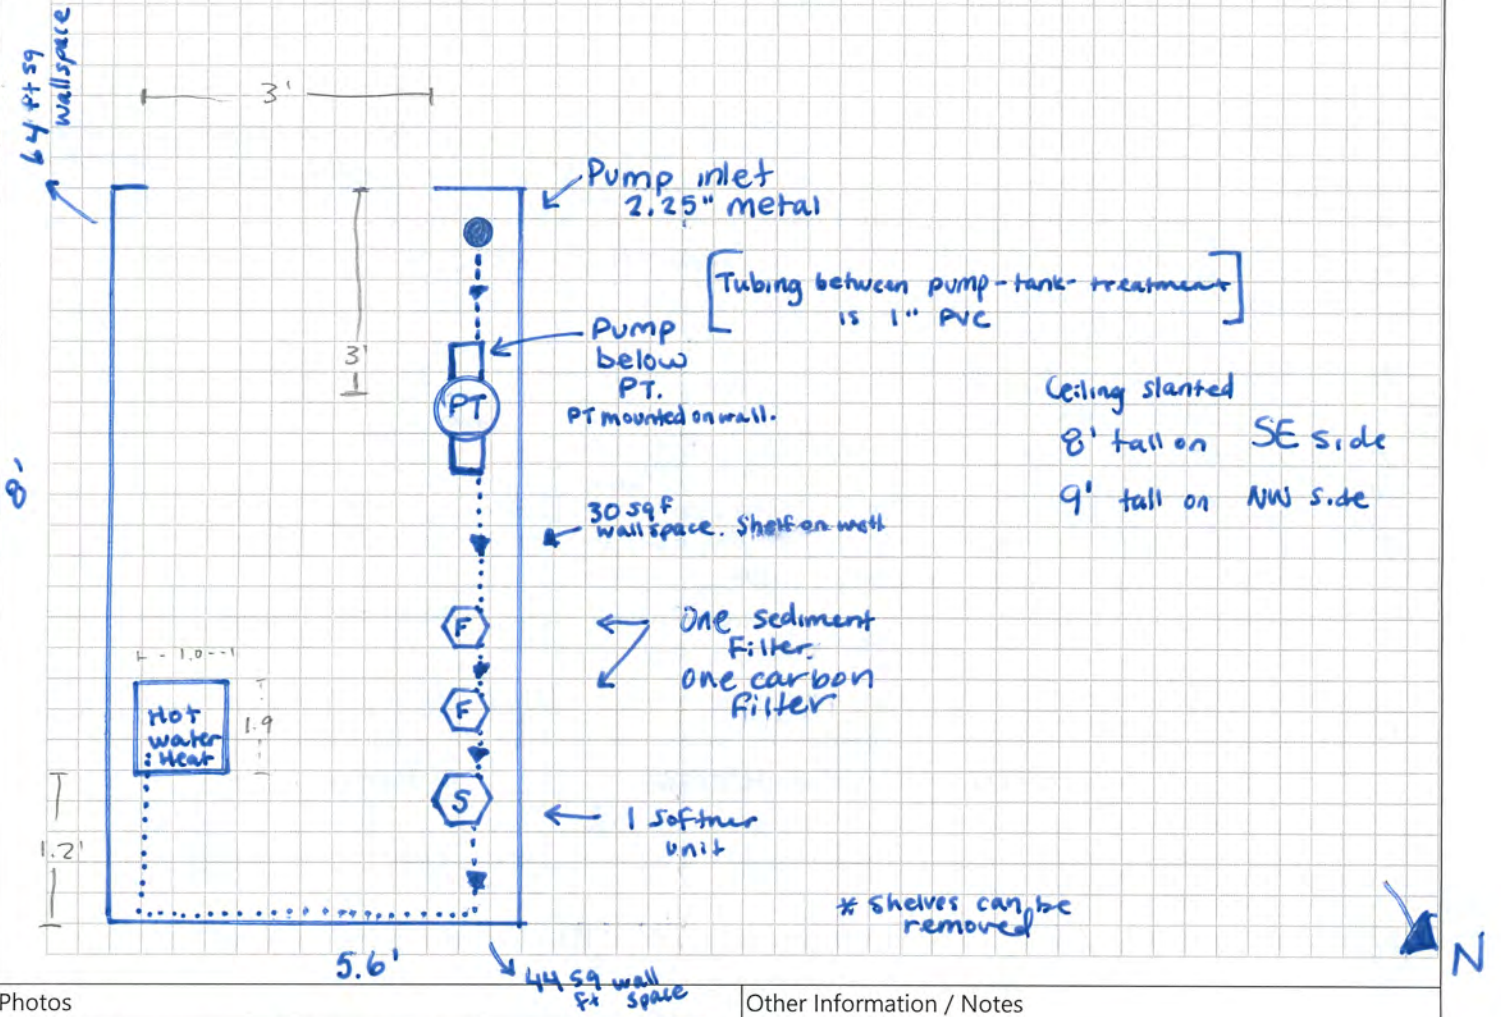 64 ft sq
wallspace
3'
Pump inlet
2.25" metal
[Tubing between pump-tank-treatment
is 1" PVC]
3'
Pump
below
PT.
PT mounted on wall.
PT
Ceiling slanted
8' tall on SE side
9' tall on NW side
8'
30 sqf
wallspace. Shelf on wall
F
One sediment
Filter.
F
One carbon
Filter
1.0
Hot
water
Heat
1.9
S
1 softner
unit
1.2'
* Shelves can be
removed
N
5.6'
44 sq wall
ft space
Photos
Other Information / Notes